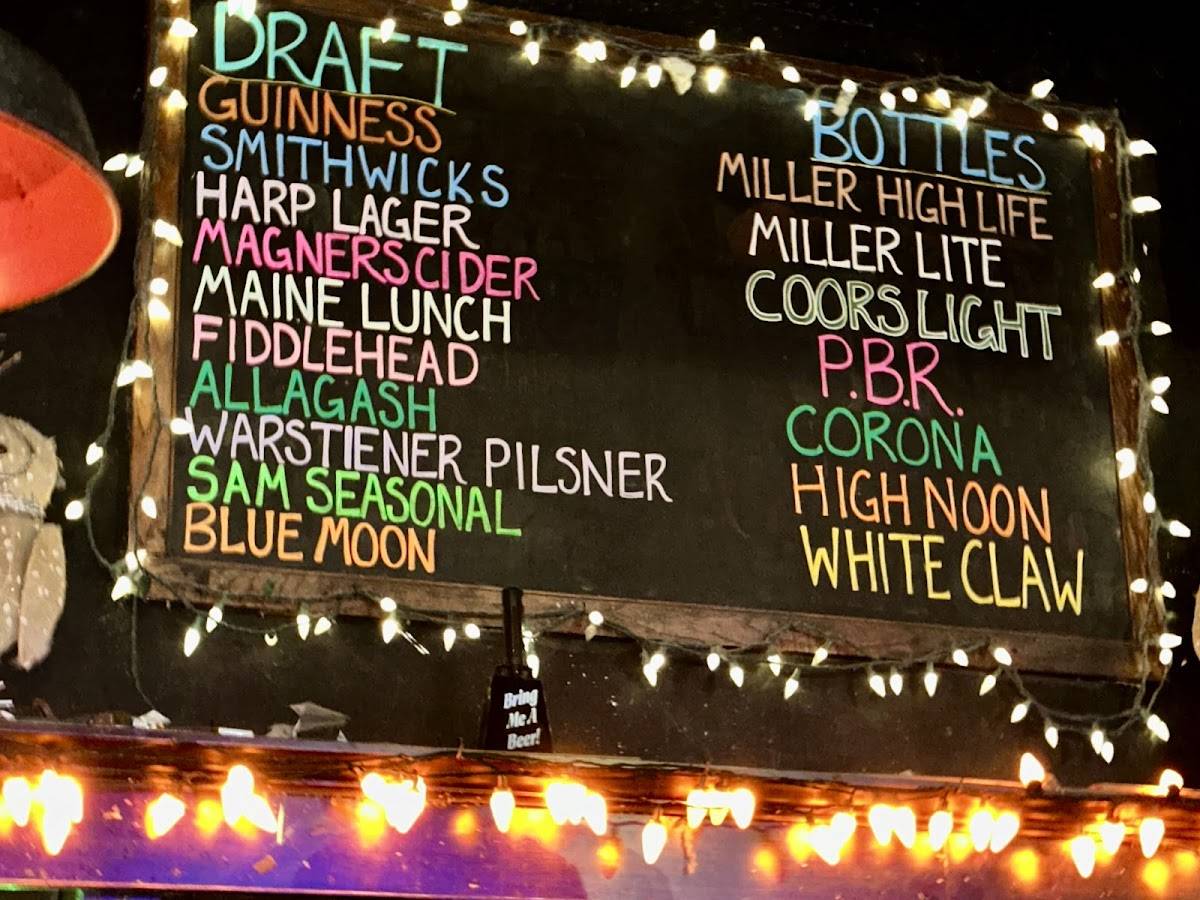 DRAFT
GUINNESS
SMITHWICKS
HARP LAGER
MAGNERS CIDER
MAINE LUNCH
FIDDLEHEAD
ALLAGASH
WARSTIENER PILSNER
SAM SEASONAL
BLUE MOON
BOTTLES
MILLER HIGH LIFE
MILLER LITE
COORS LIGHT
P.B.R.
CORONA
HIGH NOON
WHITE CLAW
Bring
Me A
Beer!